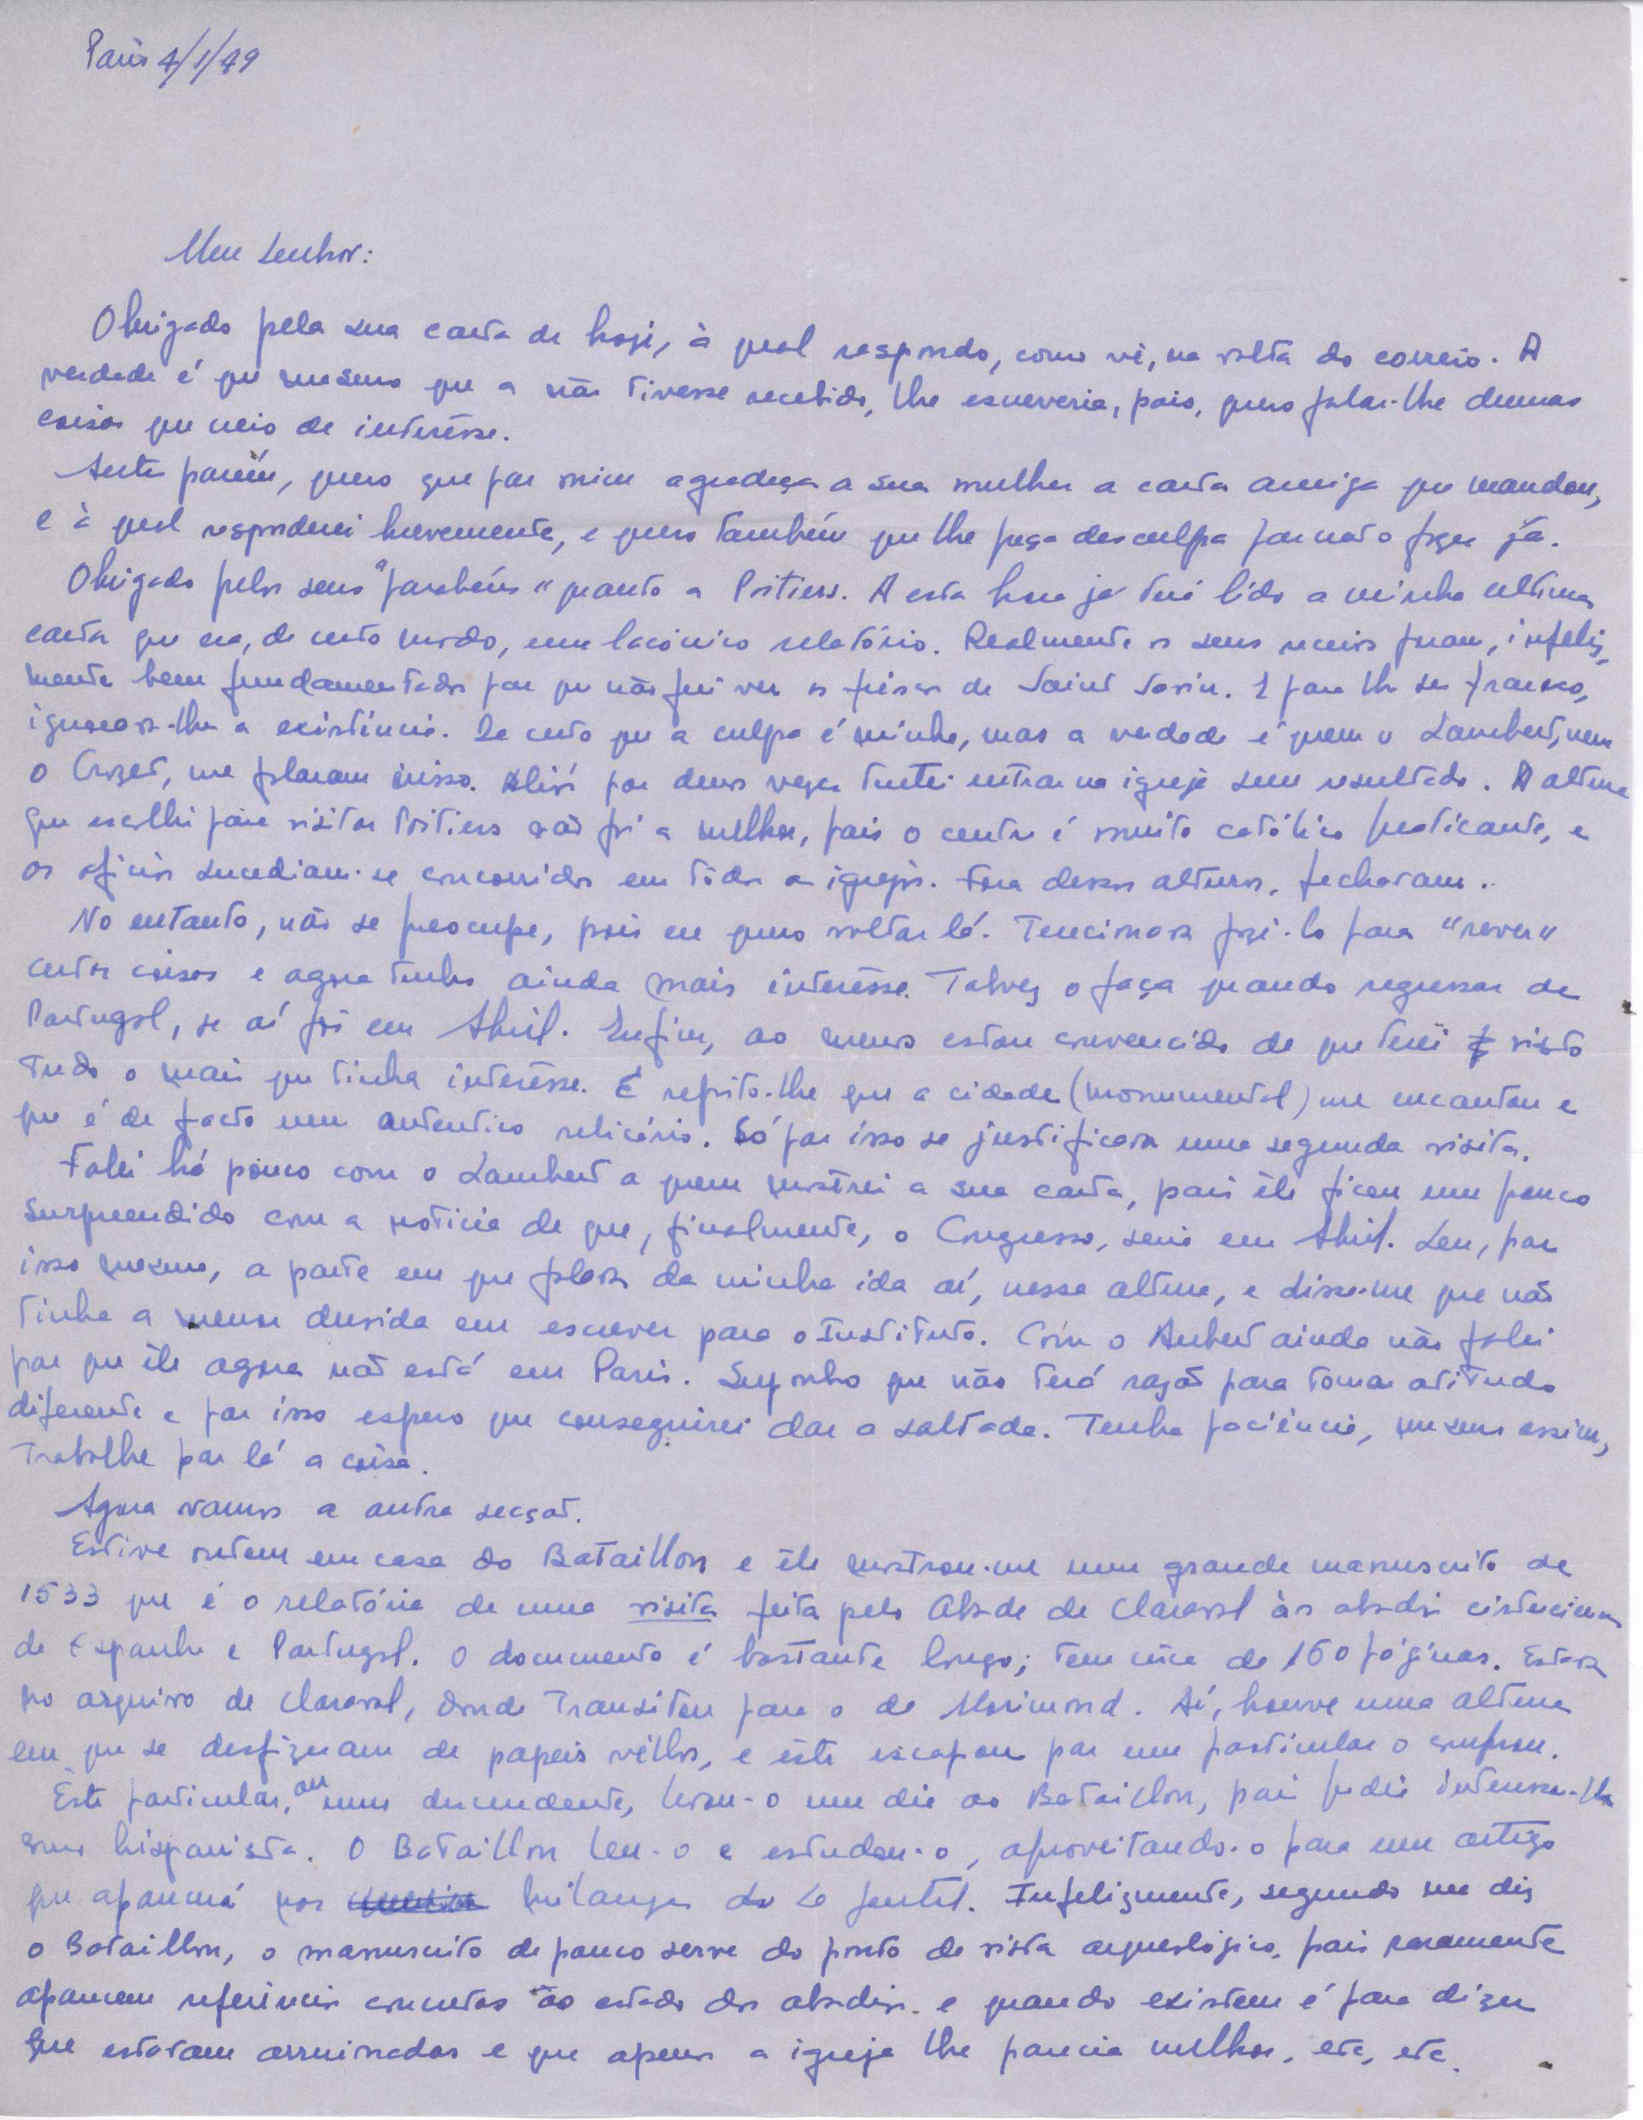 Paris 4/1/49
Meu Senhor:
Obrigado pela sua carta de hoje, à qual respondo, como vê, na volta do correio. A
verdade é que mesmo que a não tivesse recebido, lhe escreveria, pois, quero falar-lhe dumas
coisas que creio de interêsse.
Ante porém, quero que por mim agradeça a sua mulher a carta amiga que mandou,
e à qual responderei brevemente, e quero também que lhe peça desculpa por não o fazer já.
Obrigado pelos seus "parabéns" quanto a Poitiers. A esta hora já terá lido a minha ultima
carta que era, de certo modo, um lacónico relatório. Realmente os seus receios foram, infeliz-
mente bem fundamentados por que não fui ver os frisos de Saint Savin. E para lhe ser franco,
ignorava-lhe a existência. De certo que a culpa é minha, mas a verdade é que nem o Lambert, nem
o Crozet, me falaram nisso. Aliás por duas vezes tentei entrar na igreja sem resultado. A altura
que escolhi para visitar Poitiers não foi a melhor, pois o centro é muito católico praticante, e
os ofícios sucediam-se concorridos em tôdas as igrejas. Fora dessas alturas, fechavam.
No entanto, não se preocupe, pois eu quero voltar lá. Tencionava fazê-lo para "rever"
certas coisas e agora tenho ainda mais interêsse. Talvez o faça quando regressar de
Portugal, se aí fôr em Abril. Enfim, ao menos estou convencido de que terei visto
tudo o mais que tinha interêsse. E repito-lhe que a cidade (monumental) me encantou e
que é de facto um autentico relicário. Só por isso se justificava uma segunda visita.
Falei há pouco com o Lambert a quem mostrei a sua carta, pois êle ficou um pouco
surpreendido com a noticia de que, finalmente, o Congresso, seria em Abril. Leu, por
isso mesmo, a parte em que falava da minha ida aí, nessa altura, e disse-me que não
tinha a menor duvida em escrever para o Instituto. Com o Aubert ainda não falei
por que êle agora não está em Paris. Suponho que não terá razão para tomar atitude
diferente e por isso espero que conseguirei dar a saltada. Tenha paciência, mesmo assim,
Trabalhe por lá a coisa.
Agora vamos a outra secção.
Estive ontem em casa do Bataillon e êle mostrou-me um grande manuscrito de
1533 que é o relatório de uma visita feita pelo Abade de Claraval às abadias cistercienses
de Espanha e Portugal. O documento é bastante longo; tem cêrca de 160 páginas. Estava
no arquivo de Claraval, donde transitou para o de Morimond. Aí, houve uma altura
em que se desfizeram de papeis velhos, e êste escapou por um particular o comprou.
Êste particular, ou um descendente, levou-o um dia ao Bataillon, pois podia interessar-lhe
como hispanista. O Bataillon leu-o e estudou-o, aproveitando-o para um artigo
que aparecerá nos Mélanges do Le Gentil. Infelizmente, segundo me diz
o Bataillon, o manuscrito de pouco serve do ponto de vista arqueológico, pois raramente
aparecem referências concretas ao estado das abadias. e quando existem é para dizer
que estavam arruinadas e que apenas a igreja lhe parecia melhor, etc, etc.